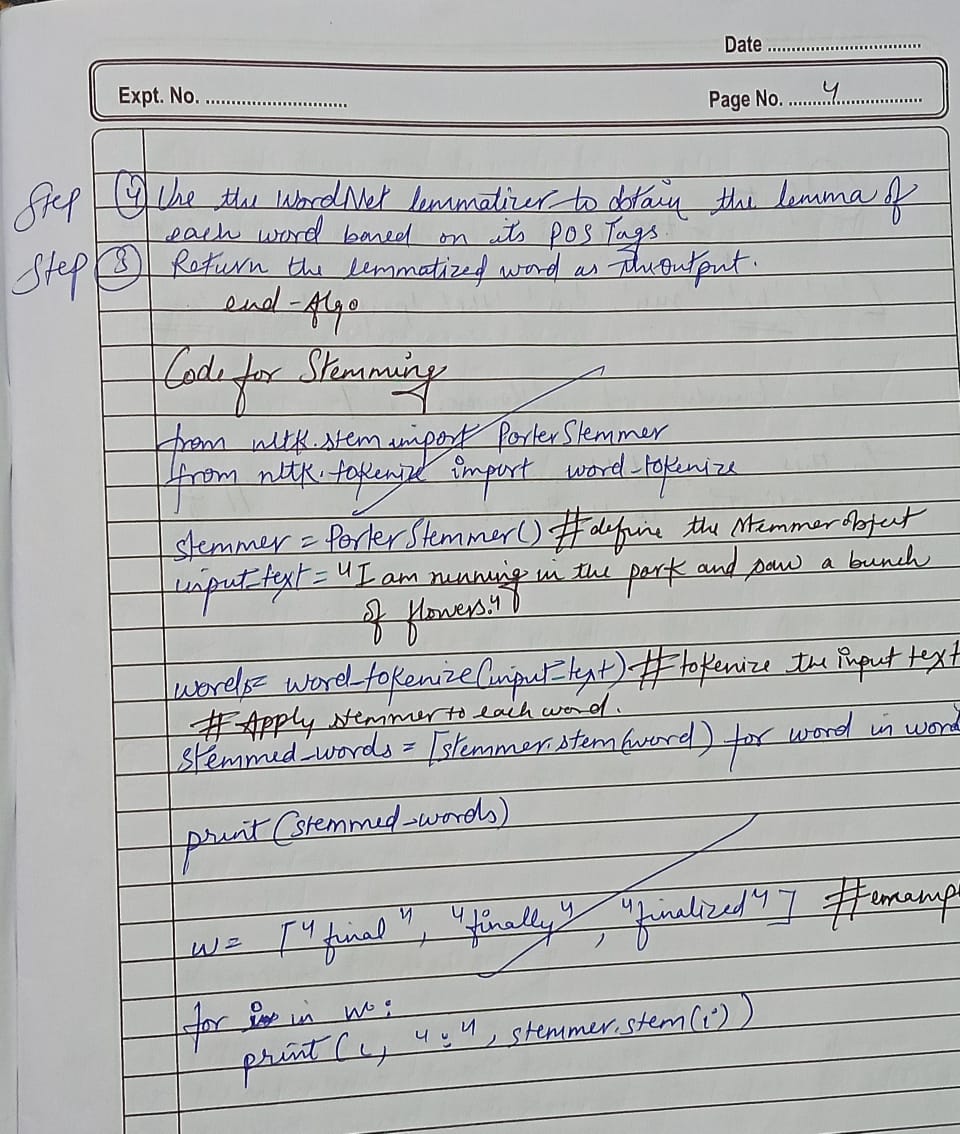 Date
Expt. No.
Page No. 4
Step ④ Use the WordNet lemmatizer to obtain the lemma of
each word based on its POS Tags.
Step ⑤ Return the lemmatized word as the output.
end-Algo
Code for Stemming
from nltk.stem import PorterStemmer
from nltk.tokenize import word_tokenize
stemmer = PorterStemmer() # define the stemmer object
input_text = "I am running in the park and saw a bunch
of flowers."
words = word_tokenize(input_text) # tokenize the input text
# Apply stemmer to each word.
stemmed_words = [stemmer.stem(word) for word in word
print(stemmed_words)
w = ["final", "finally", "finalized"] # examp
for i in w:
print(i, ":", stemmer.stem(i))